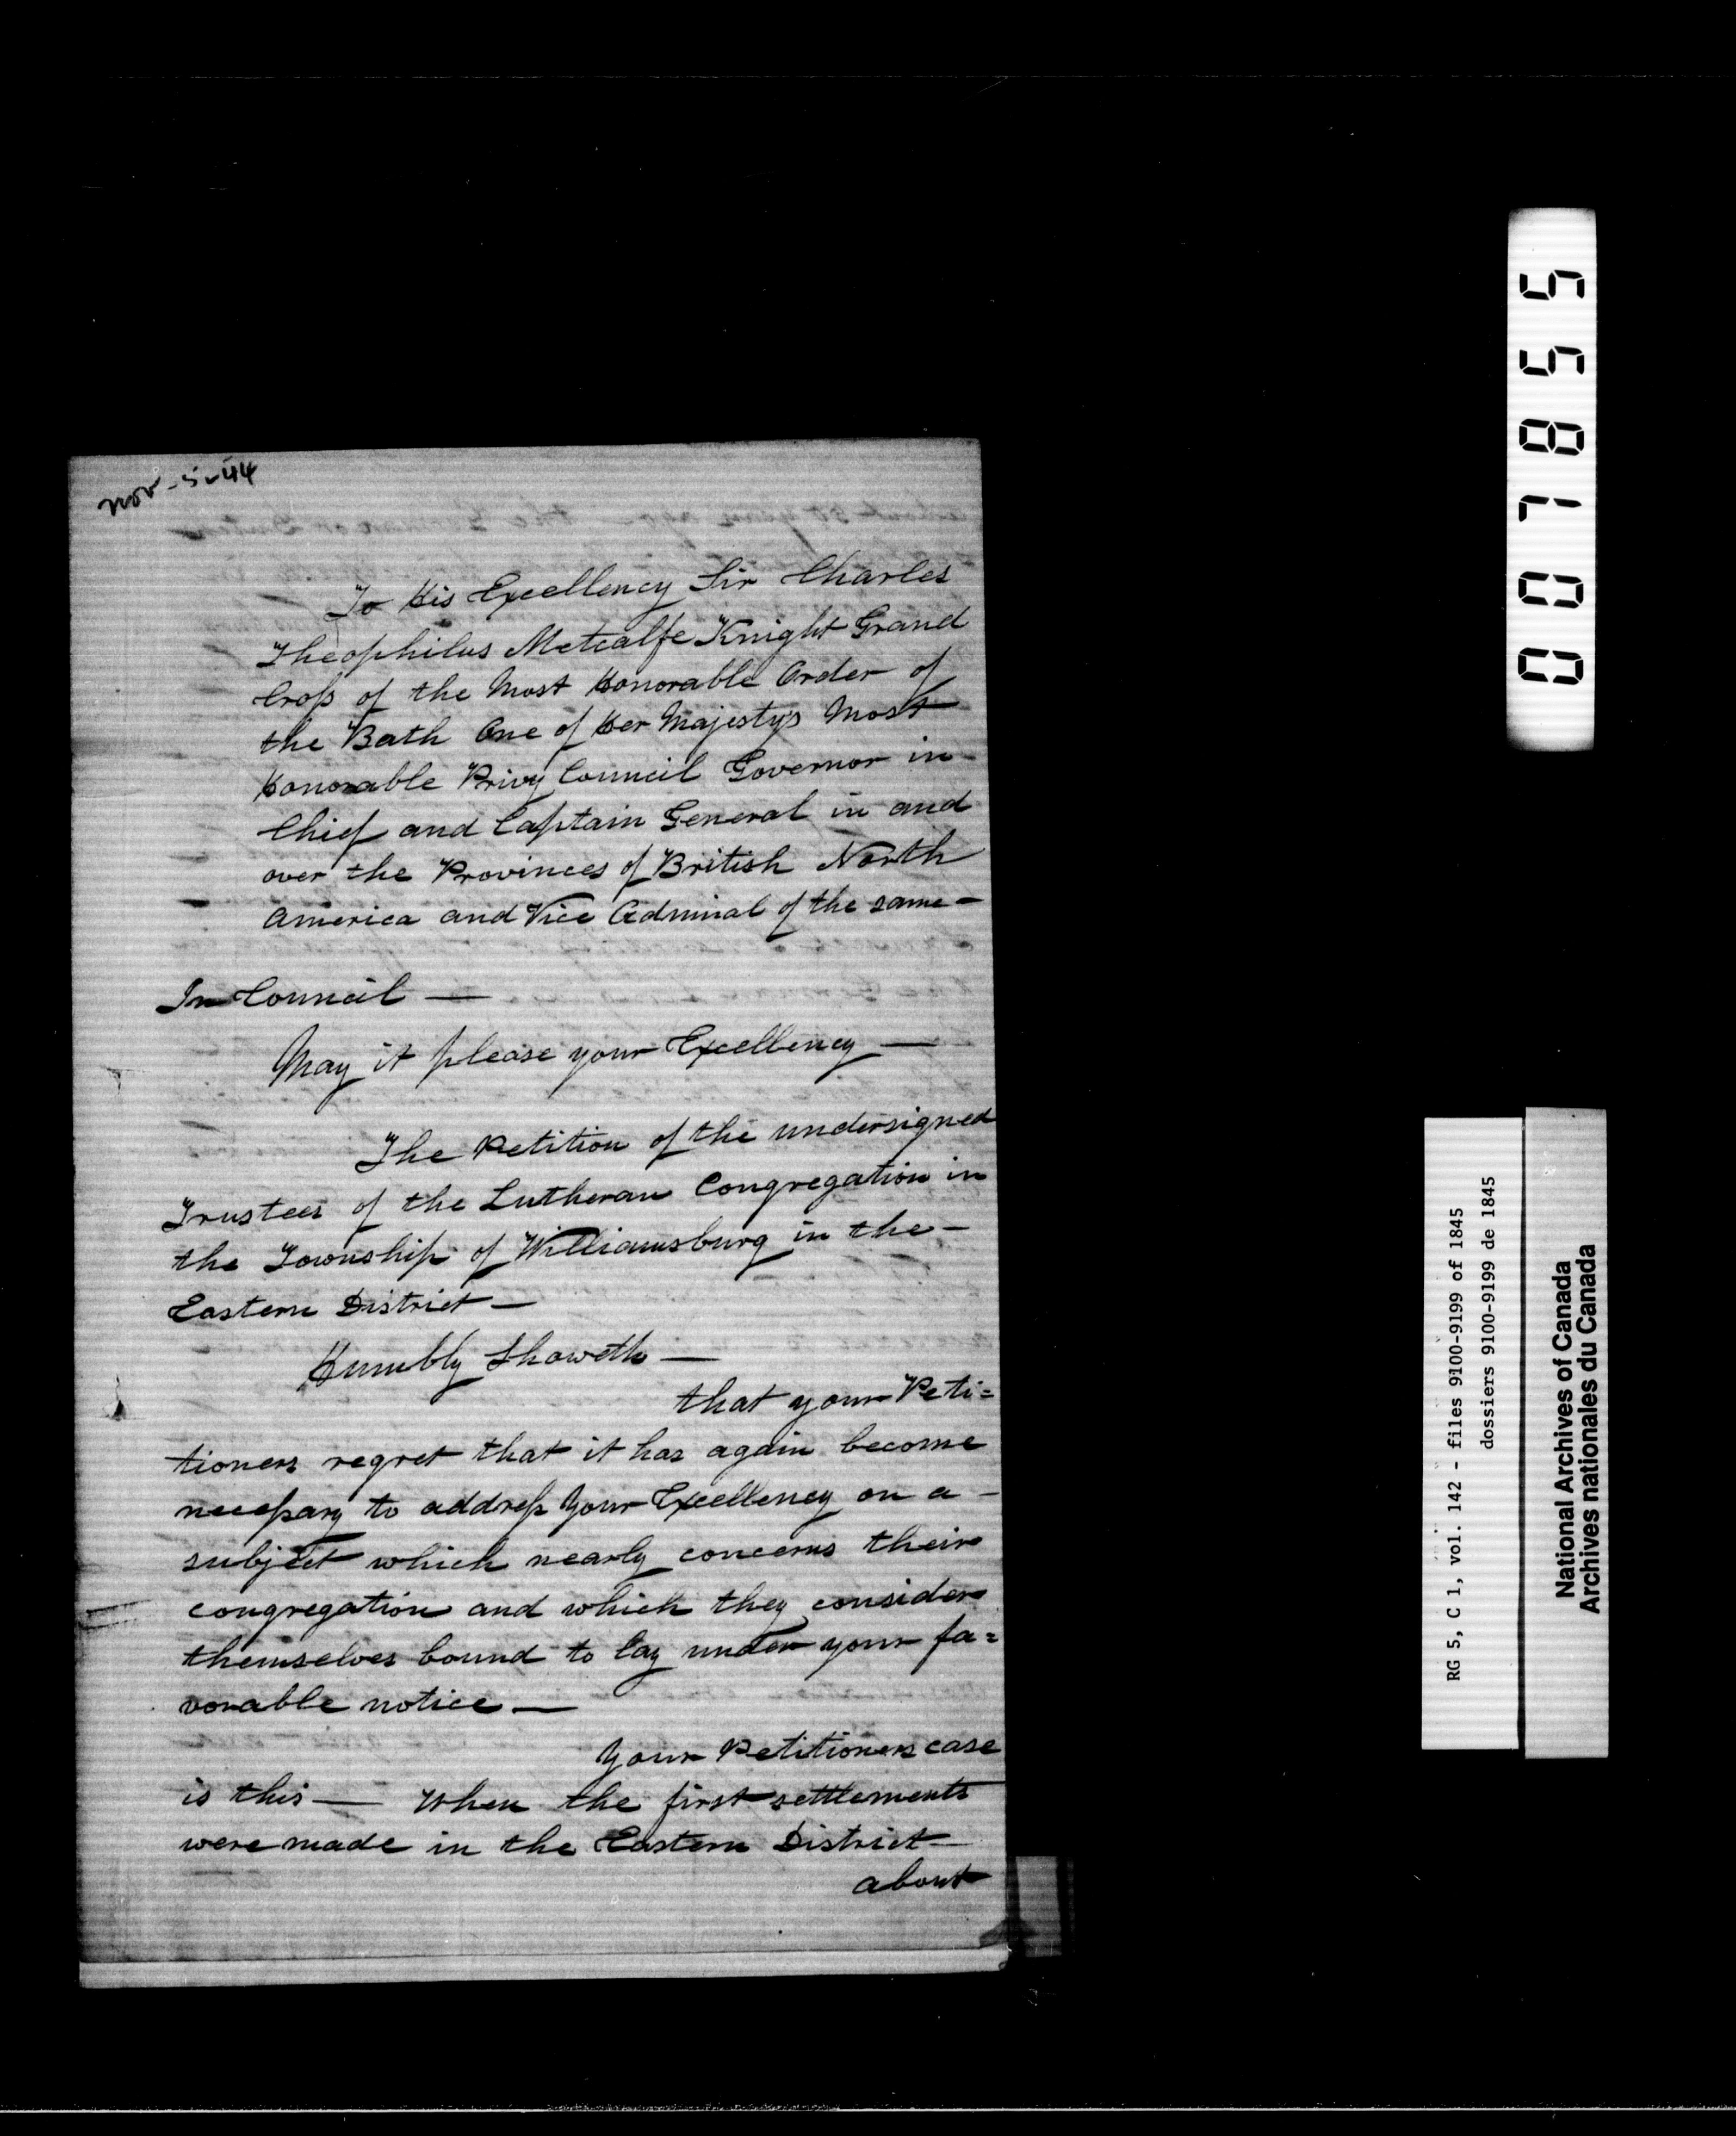 Nov - 5 - 44
To His Excellency Sir Charles
Theophilus Metcalfe Knight Grand
Cross of the Most Honorable Order of
the Bath One of Her Majestys Most
Honorable Privy Council Governor in-
Chief and Captain General in and
over the Provinces of British North
America and Vice Admiral of the same -
In Council —
May it please your Excellency —
The Petition of the undersigned
Trustees of the Lutheran Congregation in
the Township of Williamsburg in the -
Eastern District —
Humbly Showeth —
that your Peti=
tioners regret that it has again become
necessary to address Your Excellency on a -
subject which nearly concerns their
congregation and which they consider
themselves bound to lay under your fa=
vorable notice —
Your Petitioners case
is this — When the first settlements
were made in the Eastern District -
about
007855
RG 5, C 1, vol. 142 - files 9100-9199 of 1845
dossiers 9100-9199 de 1845
National Archives of Canada
Archives nationales du Canada